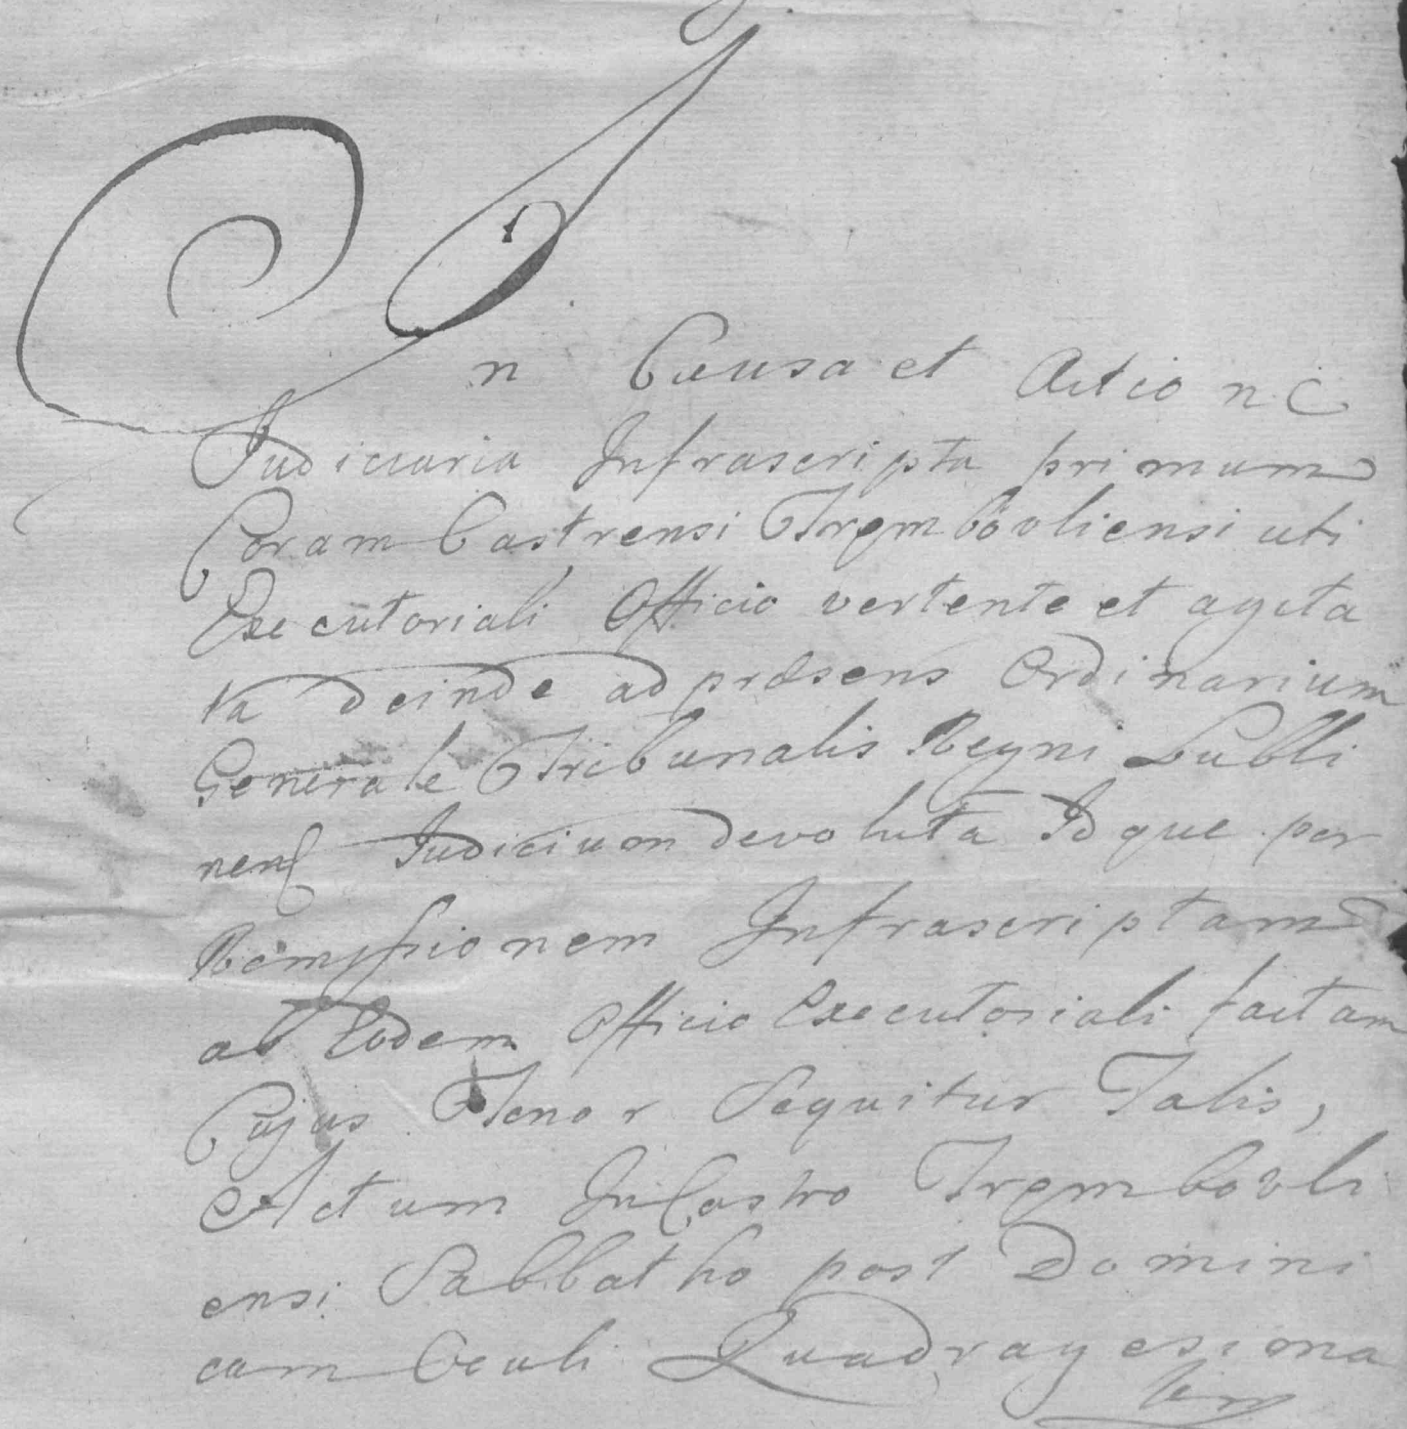 In Causa et Actione
Judiciaria Infrascripta primum
Coram Castrensi Trembovliensi uti
Executoriali Officio vertente et agita
ta deinde ad præsens Ordinarium
Generale Tribunalis Regni Lubli
nens Judicium devoluta Idque per
Remissionem Infrascriptam
ab Eodem Officio Executoriali factam
Cujus Tenor Sequitur Talis,
Actum In Castro Trembovli
ensi Sabbatho post Domini
cam Oculi Quadragesima
lem